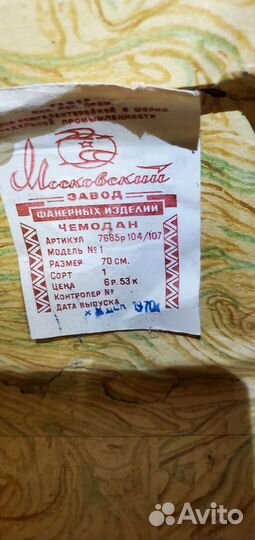 КОЖГАЛАНТЕРЕЙНОЙ И ШОРНО
СЕДЕЛЬНОЙ ПРОМЫШЛЕННОСТИ
Московский
ЗАВОД
ФАНЕРНЫХ ИЗДЕЛИЙ
ЧЕМОДАН
АРТИКУЛ 7685р 104/107
МОДЕЛЬ № 1
РАЗМЕР 70 СМ.
СОРТ 1
ЦЕНА 6 р. 53 к
КОНТРОЛЕР №
ДАТА ВЫПУСКА
1970
Avito